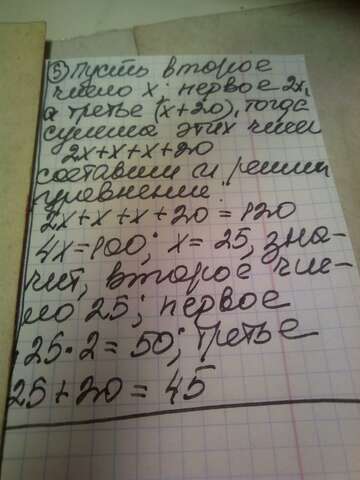 ⑤ Пусть второе
число x; первое 2x,
а третье (x+20), тогда
сумма этих чисел
2x+x+x+20
составим и решим
уравнение:
2x+x+x+20=120
4x=100; x=25, зна-
чит, второе чис-
ло 25; первое
25·2=50; третье
25+20=45